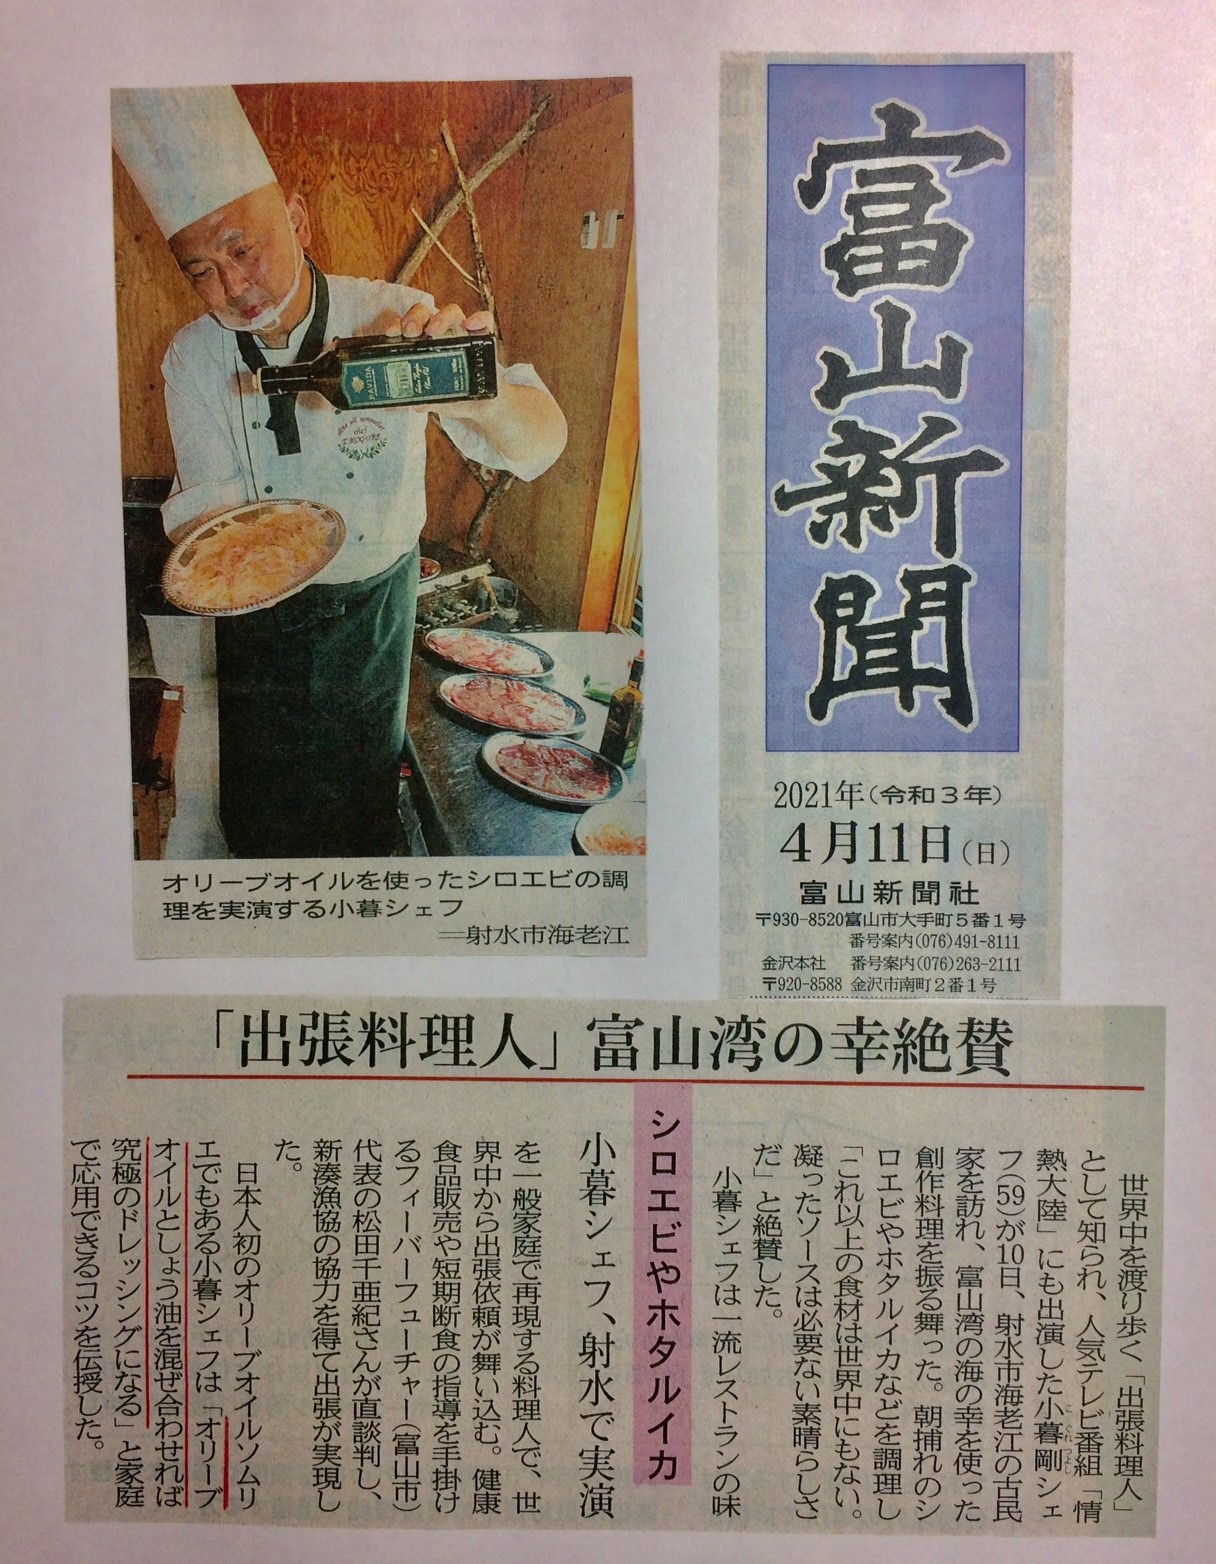 富山新聞
2021年(令和3年)
4月11日(日)
富山新聞社
〒930-8520富山市大手町5番1号
番号案内(076)491-8111
金沢本社 番号案内(076)263-2111
〒920-8588 金沢市南町2番1号
オリーブオイルを使ったシロエビの調
理を実演する小暮シェフ
=射水市海老江
「出張料理人」富山湾の幸絶賛
シロエビやホタルイカ
小暮シェフ、射水で実演
世界中を渡り歩く「出張料理人」
として知られ、人気テレビ番組「情
熱大陸」にも出演した小暮剛シェ
こぐれ つよし
フ(59)が10日、射水市海老江の古民
家を訪れ、富山湾の海の幸を使った
創作料理を振る舞った。朝捕れのシ
ロエビやホタルイカなどを調理し
「これ以上の食材は世界中にもない。
凝ったソースは必要ない素晴らしさ
だ」と絶賛した。
小暮シェフは一流レストランの味
を一般家庭で再現する料理人で、世
界中から出張依頼が舞い込む。健康
食品販売や短期断食の指導を手掛け
るフィーバーフューチャー(富山市)
代表の松田千亜紀さんが直談判し、
新湊漁協の協力を得て出張が実現し
た。
日本人初のオリーブオイルソムリ
エでもある小暮シェフは「オリーブ
オイルとしょう油を混ぜ合わせれば
究極のドレッシングになる」と家庭
で応用できるコツを伝授した。